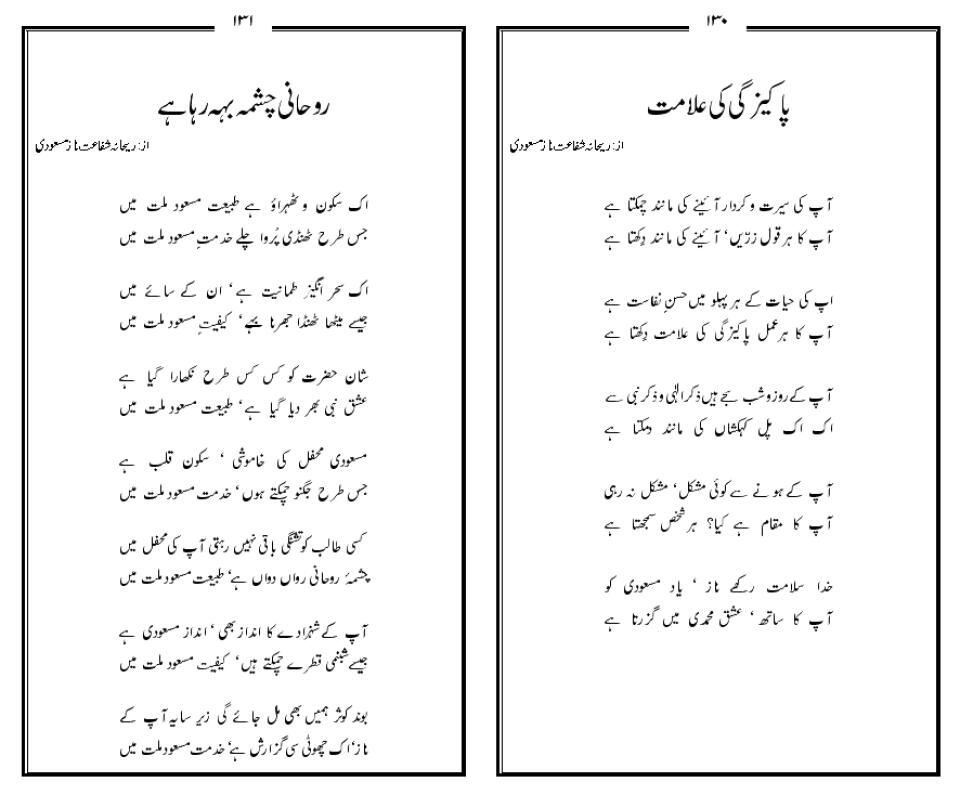 ۱۳۰
پاکیزگی کی علامت
از: ریحانہ شفاعت ناز مسعودی
آپ کی سیرت و کردار آئینے کی مانند چمکتا ہے
آپ کا ہر قول زرّیں‘ آئینے کی مانند دِکھتا ہے
اپ کی حیات کے ہر پہلو میں حسنِ نفاست ہے
آپ کا ہر عمل پاکیزگی کی علامت دِکھتا ہے
آپ کے روز و شب سجے ہیں ذکر الٰہی و ذکر نبی سے
اک اک پل کہکشاں کی مانند دمکتا ہے
آپ کے ہونے سے کوئی مشکل‘ مشکل نہ رہی
آپ کا مقام ہے کیا؟ ہر شخص سمجھتا ہے
خدا سلامت رکھے ناز ‘ یاد مسعودی کو
آپ کا ساتھ ‘ عشق محمدی میں گزرتا ہے
۱۳۱
روحانی چشمہ بہہ رہا ہے
از: ریحانہ شفاعت ناز مسعودی
اک سکون و ٹھہراؤ ہے طبیعت مسعود ملت میں
جس طرح ٹھنڈی پُروا چلے خدمتِ مسعود ملت میں
اک سحر انگیز طمانیت ہے‘ ان کے سائے میں
جیسے میٹھا ٹھنڈا جھرنا بہے‘ کیفیتِ مسعود ملت میں
شان حضرت کو کس کس طرح نکھارا گیا ہے
عشق نبی بھر دیا گیا ہے‘ طبیعت مسعود ملت میں
مسعودی محفل کی خاموشی ‘ سکون قلب ہے
جس طرح جگنو چمکتے ہوں‘ خدمت مسعود ملت میں
کسی طالب کو تشنگی باقی نہیں رہتی آپ کی محفل میں
چشمۂ روحانی رواں دواں ہے‘ طبیعت مسعود ملت میں
آپ کے شہزادے کا انداز بھی ‘ انداز مسعودی ہے
جیسے شبنمی قطرے چمکتے ہیں‘ کیفیت مسعود ملت میں
بوند کوثر ہمیں بھی مل جائے گی زیر سایہ آپ کے
ناز‘ اک چھوٹی سی گزارش ہے‘ خدمت مسعود ملت میں